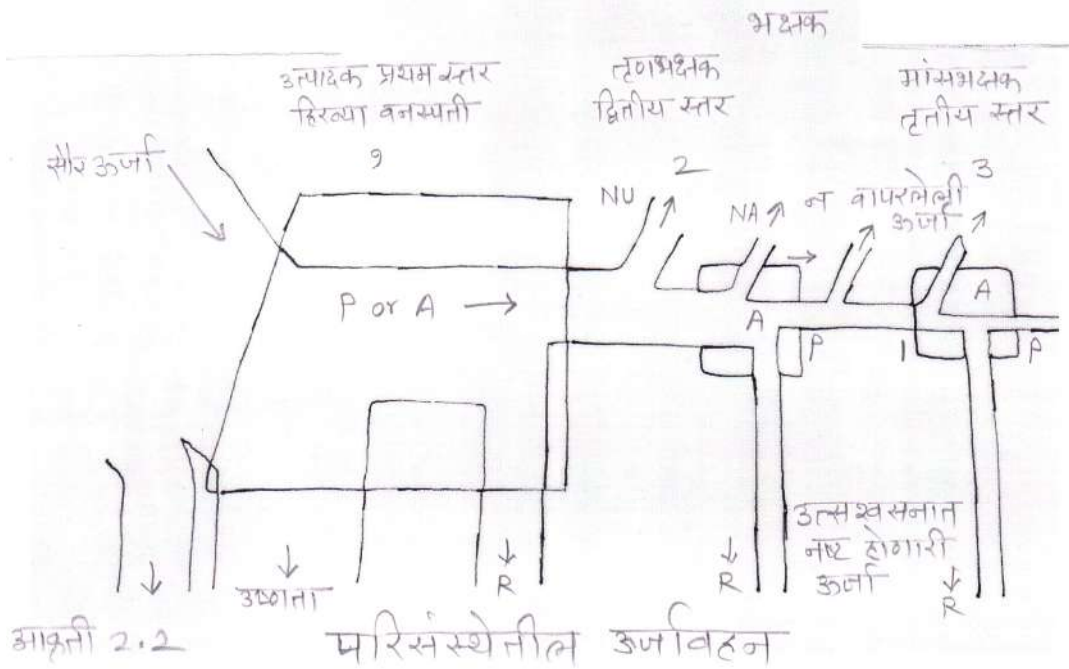 भक्षक
उत्पादक प्रथम स्तर
हिरव्या वनस्पती
तृणभक्षक
द्वितीय स्तर
मांसभक्षक
तृतीय स्तर
सौर ऊर्जा
१
2
3
NU
NA
न वापरलेली
ऊर्जा
P or A
A
P
A
I
P
उत्सश्वसनात
नष्ट होणारी
ऊर्जा
उष्णता
R
R
R
आकृती 2.2
परिसंस्थेतील ऊर्जावहन